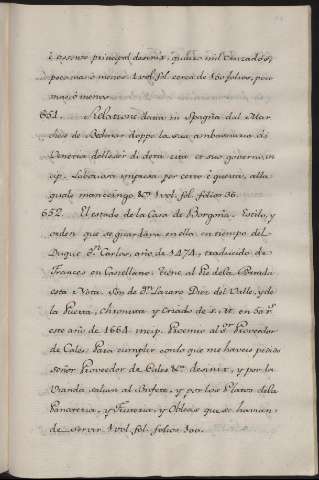 è essente principal desnix. quatro mil cruzados,
poco mas, ò menos. 1 vol. fol. cerca de 160 folios, poco
mas, ò menos.
651. Relatione data in Spagña dal Mar
chese de Bedmar doppo la sua ambasciata di
Venetia dell'esser di detta citta et suo governo, in
cip. Laboriosa impresa per certo è questa, alla
quale mancsingo &ª. 1 vol. fol. folios 36.
652. El estado de la Casa de Borgoña. Estilo, y
orden que se guardava en ella en tiempo del
Duque Dⁿ Carlos, año de 1474, traducido de
Frances en Castellano. tiene al Pie de la Portada
esta Nota. Son de Dⁿ Lazaro Diez del Valle, y de
la Puerta, Chronista y Criado de S. M. en
este año de 1664. incip. Proemio al Sʳ Proveedor
de Cales. Para cumplir con lo que me haveis pedido
señor Proveedor de Cales &ª. desnix, y por la
Vianda salian al Bufete, y por los Platos de la
Panateria, y Fruteria, y Obleas que se havian
de servir. 1 vol. fol. folios 300.